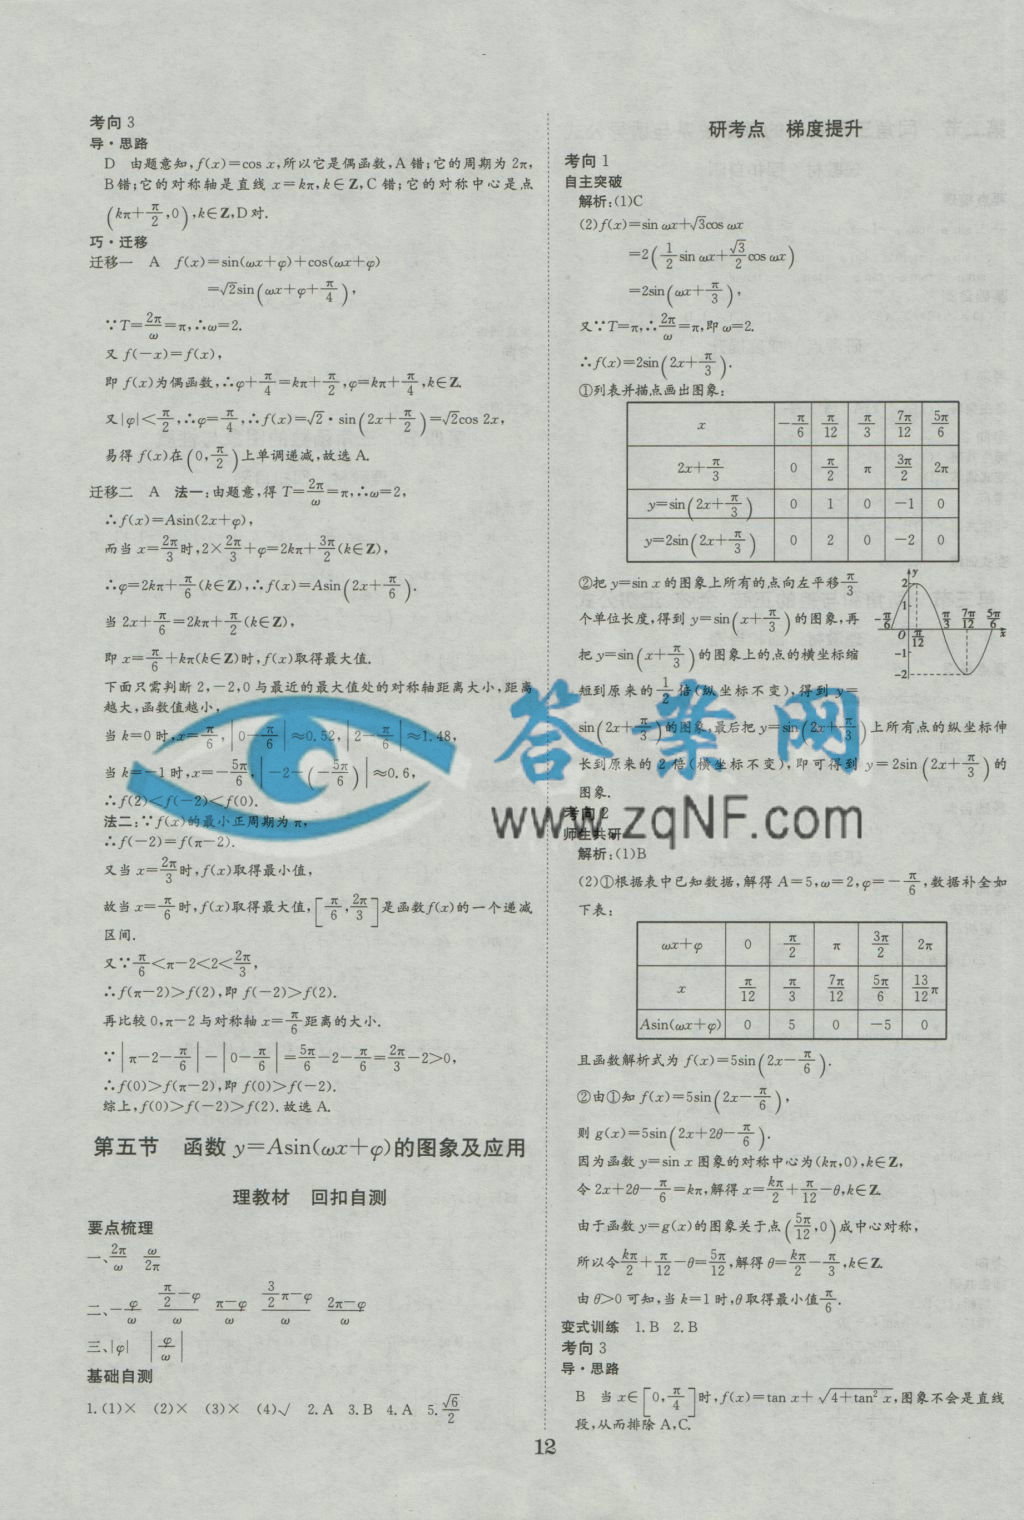 考向 3
导·思路
D 由题意知,f(x)=cos x,所以它是偶函数,A错;它的周期为2π,
B错;它的对称轴是直线 x=kπ,k∈Z,C错;它的对称中心是点
(kπ+π/2,0),k∈Z,D对.
巧·迁移
迁移一 A f(x)=sin(ωx+φ)+cos(ωx+φ)
=√2sin(ωx+φ+π/4),
∵T=2π/ω=π,∴ω=2.
又 f(-x)=f(x),
即 f(x)为偶函数,∴φ+π/4=kπ+π/2,φ=kπ+π/4,k∈Z.
又|φ|<π/2,∴φ=π/4,∴f(x)=√2·sin(2x+π/2)=√2cos 2x,
易得 f(x)在(0,π/2)上单调递减,故选A.
迁移二 A 法一:由题意,得 T=2π/ω=π,∴ω=2,
∴f(x)=Asin(2x+φ),
而当 x=2π/3时,2×2π/3+φ=2kπ+3π/2(k∈Z),
∴φ=2kπ+π/6(k∈Z),∴f(x)=Asin(2x+π/6).
当 2x+π/6=2kπ+π/2(k∈Z),
即 x=π/6+kπ(k∈Z)时,f(x)取得最大值.
下面只需判断 2,-2,0 与最近的最大值处的对称轴距离大小,距离
越大,函数值越小,
当 k=0 时,x=π/6,|0-π/6|≈0.52,|2-π/6|≈1.48,
当 k=-1 时,x=-5π/6,|-2-(-5π/6)|≈0.6,
∴f(2)<f(-2)<f(0).
法二:∵f(x)的最小正周期为 π,
∴f(-2)=f(π-2).
又当 x=2π/3时,f(x)取得最小值,
故当 x=π/6时,f(x)取得最大值,[π/6,2π/3]是函数f(x)的一个递减
区间.
又∵π/6<π-2<2<2π/3,
∴f(π-2)>f(2),即 f(-2)>f(2).
再比较 0,π-2 与对称轴 x=π/6距离的大小.
∵|π-2-π/6|-|0-π/6|=5π/6-2-π/6=2π/3-2>0,
∴f(0)>f(π-2),即 f(0)>f(-2).
综上,f(0)>f(-2)>f(2).故选A.
第五节 函数 y=Asin(ωx+φ)的图象及应用
理教材 回扣自测
要点梳理
一、2π/ω ω/2π
二、-φ/ω (π/2-φ)/ω (π-φ)/ω (3/2π-φ)/ω (2π-φ)/ω
三、|φ| |φ/ω|
基础自测
1.(1)× (2)× (3)× (4)√ 2.A 3.B 4.A 5.√6/2
研考点 梯度提升
考向 1
自主突破
解析:(1)C
(2)f(x)=sin ωx+√3cos ωx
=2(1/2 sin ωx+√3/2 cos ωx)
=2sin(ωx+π/3),
又∵T=π,∴2π/ω=π,即 ω=2.
∴f(x)=2sin(2x+π/3).
①列表并描点画出图象:
x -π/6 π/12 π/3 7π/12 5π/6
2x+π/3 0 π/2 π 3π/2 2π
y=sin(2x+π/3) 0 1 0 -1 0
y=2sin(2x+π/3) 0 2 0 -2 0
②把 y=sin x 的图象上所有的点向左平移π/3
个单位长度,得到 y=sin(x+π/3)的图象,再
把 y=sin(x+π/3)的图象上的点的横坐标缩
短到原来的1/2倍(纵坐标不变),得到 y=
sin(2x+π/3)的图象,最后把 y=sin(2x+π/3)上所有点的纵坐标伸
长到原来的 2 倍(横坐标不变),即可得到 y=2sin(2x+π/3)的
图象.
y 2 1 -π/6 O π/12 π/3 7π/12 5π/6 x -1 -2
考向 2
师生共研
解析:(1)B
(2)①根据表中已知数据,解得 A=5,ω=2,φ=-π/6,数据补全如
下表:
ωx+φ 0 π/2 π 3π/2 2π
x π/12 π/3 7π/12 5π/6 13/12π
Asin(ωx+φ) 0 5 0 -5 0
且函数解析式为 f(x)=5sin(2x-π/6).
②由①知 f(x)=5sin(2x-π/6),
则 g(x)=5sin(2x+2θ-π/6).
因为函数 y=sin x 图象的对称中心为(kπ,0),k∈Z,
令 2x+2θ-π/6=kπ,解得 x=kπ/2+π/12-θ,k∈Z.
由于函数 y=g(x)的图象关于点(5π/12,0)成中心对称,
所以令kπ/2+π/12-θ=5π/12,解得 θ=kπ/2-π/3,k∈Z.
由 θ>0 可知,当 k=1 时,θ取得最小值π/6.
变式训练 1.B 2.B
考向 3
导·思路
B 当 x∈[0,π/4]时,f(x)=tan x+√(4+tan² x),图象不会是直线
段,从而排除A,C.
12
答案网
www.zqNF.com